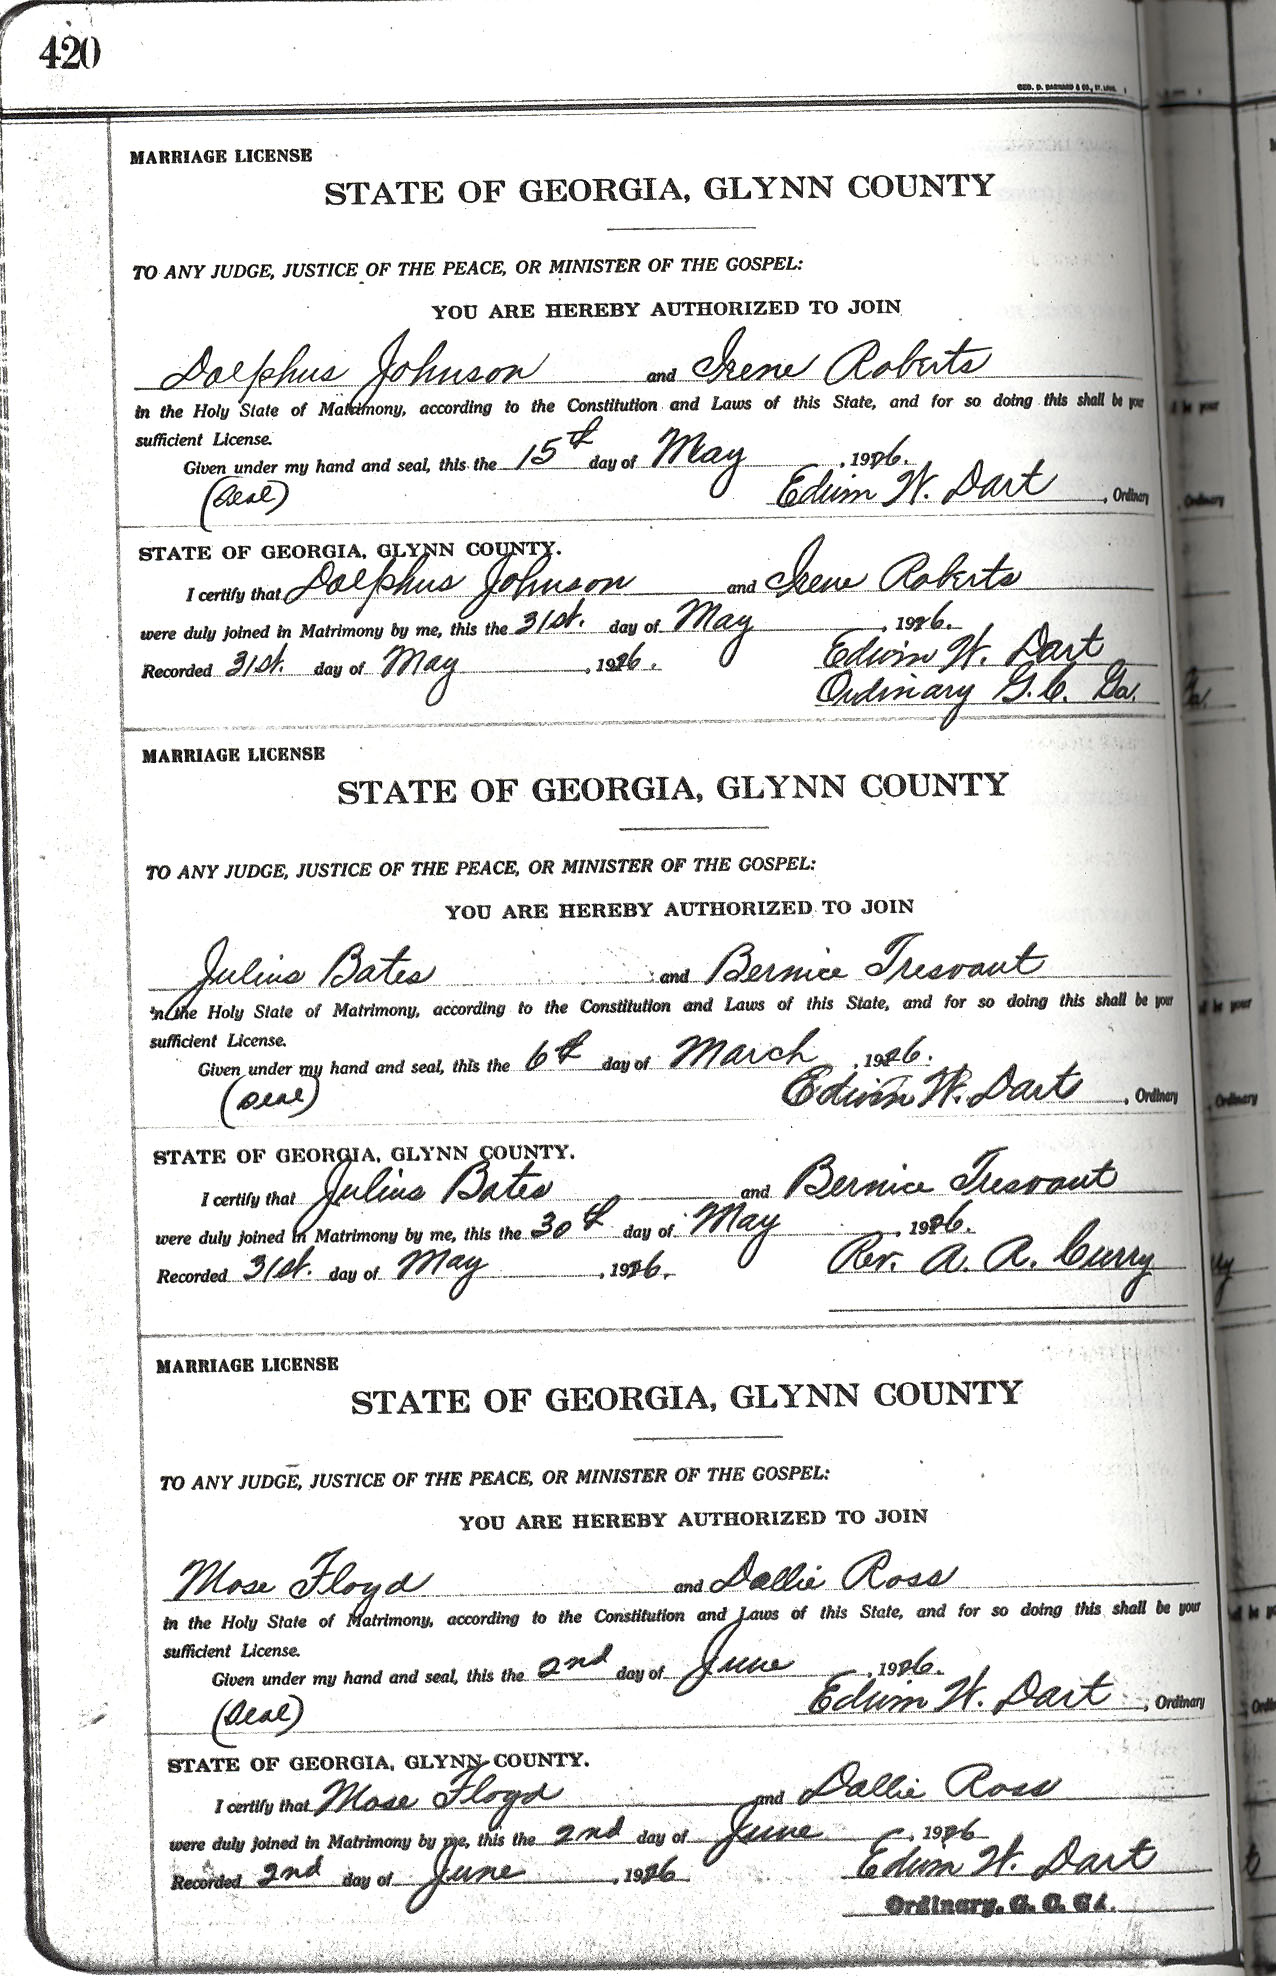 420
GEO. D. BARNARD & CO., ST. LOUIS
MARRIAGE LICENSE
STATE OF GEORGIA, GLYNN COUNTY
TO ANY JUDGE, JUSTICE OF THE PEACE, OR MINISTER OF THE GOSPEL:
YOU ARE HEREBY AUTHORIZED TO JOIN
Dolphus Johnson and Irene Roberts
in the Holy State of Matrimony, according to the Constitution and Laws of this State, and for so doing this shall be your
sufficient License.
Given under my hand and seal, this the 15th day of May, 1926.
(Seal) Edwin W. Dart, Ordinary
STATE OF GEORGIA, GLYNN COUNTY.
I certify that Dolphus Johnson and Irene Roberts
were duly joined in Matrimony by me, this the 31st. day of May, 1926.
Recorded 31st. day of May, 1926. Edwin W. Dart
Ordinary G. C. Ga.
MARRIAGE LICENSE
STATE OF GEORGIA, GLYNN COUNTY
TO ANY JUDGE, JUSTICE OF THE PEACE, OR MINISTER OF THE GOSPEL:
YOU ARE HEREBY AUTHORIZED TO JOIN
Julius Bates and Bernice Tresvant
in the Holy State of Matrimony, according to the Constitution and Laws of this State, and for so doing this shall be your
sufficient License.
Given under my hand and seal, this the 6th day of March, 1926.
(Seal) Edwin W. Dart, Ordinary
STATE OF GEORGIA, GLYNN COUNTY.
I certify that Julius Bates and Bernice Tresvant
were duly joined in Matrimony by me, this the 30th day of May, 1926.
Recorded 31st. day of May, 1926. Rev. A. A. Curry
MARRIAGE LICENSE
STATE OF GEORGIA, GLYNN COUNTY
TO ANY JUDGE, JUSTICE OF THE PEACE, OR MINISTER OF THE GOSPEL:
YOU ARE HEREBY AUTHORIZED TO JOIN
Mose Floyd and Dallie Ross
in the Holy State of Matrimony, according to the Constitution and Laws of this State, and for so doing this shall be your
sufficient License.
Given under my hand and seal, this the 2nd day of June, 1926.
(Seal) Edwin W. Dart, Ordinary
STATE OF GEORGIA, GLYNN COUNTY.
I certify that Mose Floyd and Dallie Ross
were duly joined in Matrimony by me, this the 2nd day of June, 1926
Recorded 2nd day of June, 1926 Edwin W. Dart
Ordinary, G. C. Ga.